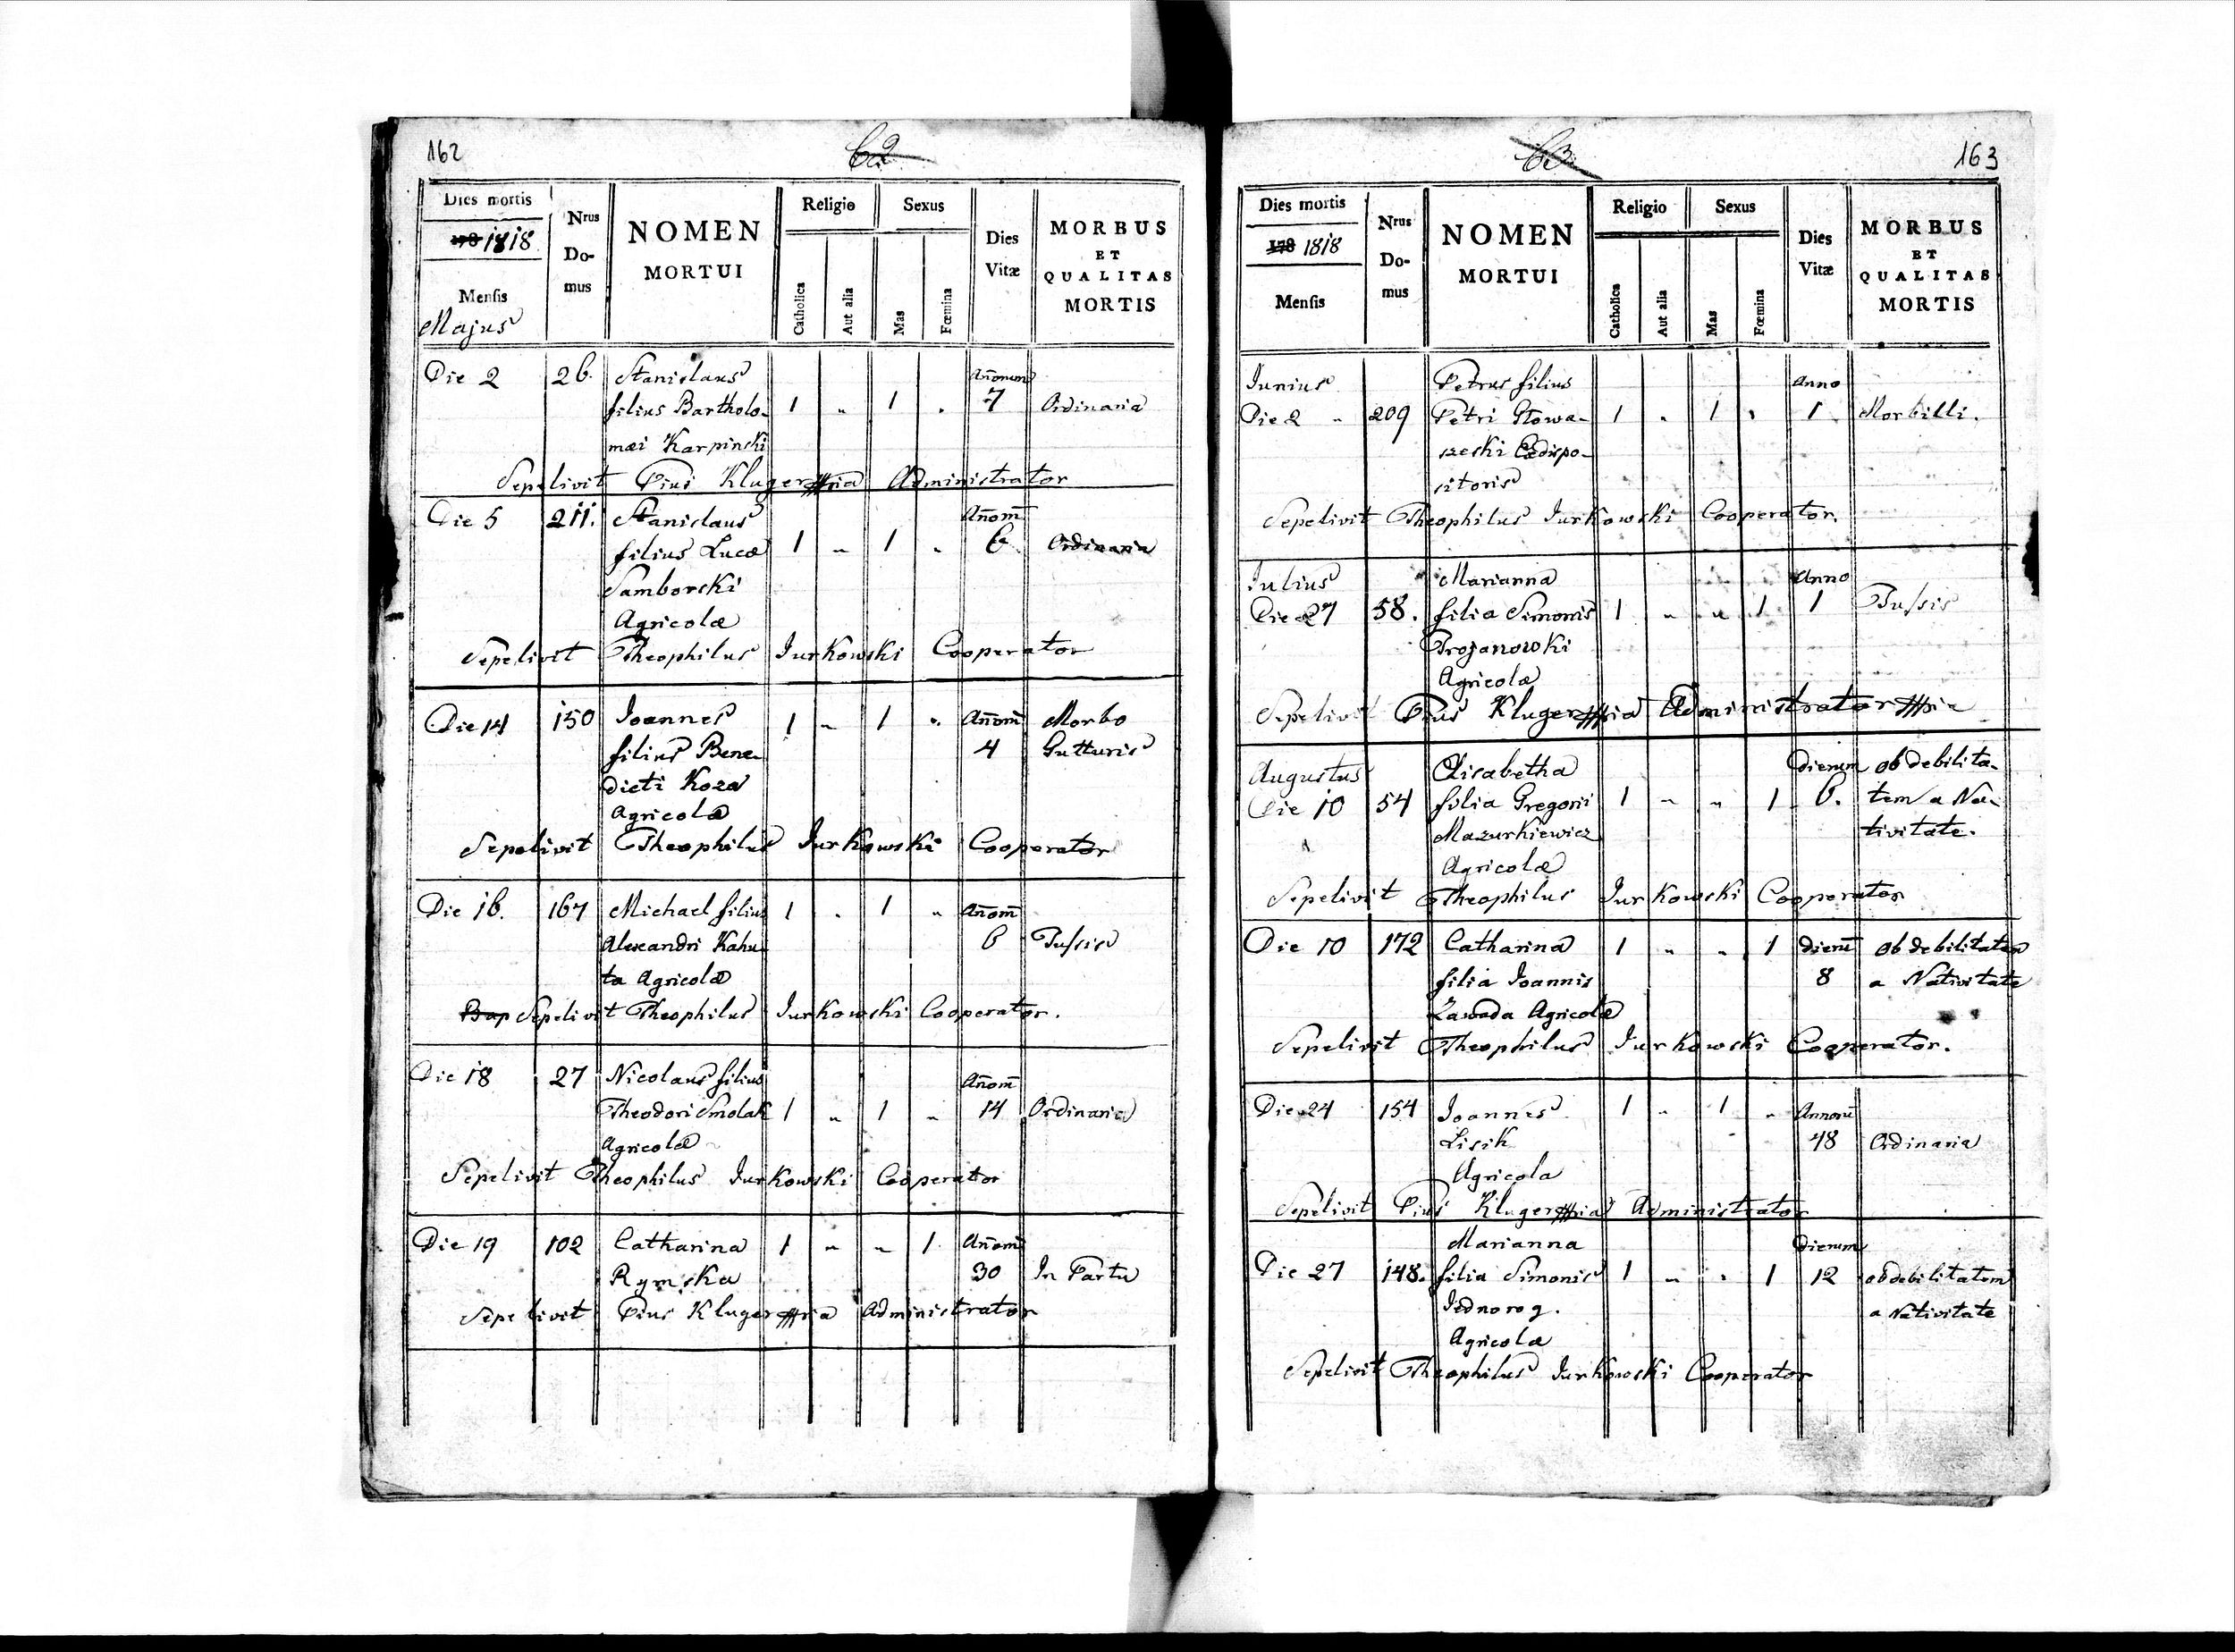 162
62
Dies mortis
178 1818
Mensis
Majus
Nrus
Do-
mus
NOMEN
MORTUI
Religio
Catholica
Aut alia
Sexus
Mas
Fœmina
Dies
Vitæ
MORBUS
ET
QUALITAS
MORTIS
Die 2 26. Stanislaus Añorum
filius Bartholo- 1 „ 1 . 7 Ordinaria
mæi Karpinski
Sepelivit Pius Kluger Administrator
Die 5 211. Stanislaus Añom
filius Lucæ 1 „ 1 „ 6 Ordinaria
Samborski
Agricolæ
Sepelivit Theophilus Jurkowski Cooperator
Die 14 150 Joannes 1 „ 1 „ Añom Morbo
filius Bene- 4 Gutturis
dicti Koza
Agricolæ
Sepelivit Theophilus Jurkowski Cooperator
Die 16. 167 Michael filius 1 „ 1 „ Añom
Alexandri Kahu- 6 Tussis
ta Agricolæ
Bap Sepelivit Theophilus Jurkowski Cooperator.
Die 18 27 Nicolaus filius Añom
Theodori Smolak 1 „ 1 „ 14 Ordinaria
Agricolæ
Sepelivit Theophilus Jurkowski Cooperator
Die 19 102 Catharina 1 „ „ 1. Añom
Rymska 30 In Partu
Sepelivit Pius Kluger Administrator
63
163
Dies mortis
178 1818
Mensis
Nrus
Do-
mus
NOMEN
MORTUI
Religio
Catholica
Aut alia
Sexus
Mas
Fœmina
Dies
Vitæ
MORBUS
ET
QUALITAS
MORTIS
Junius Petrus filius Anno
Die 2 „ 209 Petri Głowa- 1 „ 1 „ 1 Morbilli.
szeski
sitoris
Sepelivit Theophilus Jurkowski Cooperator.
Julius Marianna Anno
Die 27 58. filia Simonis 1 „ „ 1 1 Tussis
Trojanowski
Agricolæ
Sepelivit Pius Kluger Administrator
Augustus Elisabetha Dierum ob debilita-
Die 10 54 filia Gregorii 1 „ „ 1 6. tem a Na-
Mazurkiewicz tivitate.
Agricolæ
Sepelivit Theophilus Jurkowski Cooperator
Die 10 172 Catharina 1 „ „ 1 Dierū ob debilitatem
filia Joannis 8 a Nativitate
Zawada Agricolæ
Sepelivit Theophilus Jurkowski Cooperator.
Die 24 154 Joannes 1 „ 1 „ Annorū
Lisik 48 Ordinaria
Agricola
Sepelivit Pius Kluger Administrator
Marianna Dierum
Die 27 148. filia Simonis 1 „ „ 1 12 ob debilitatem
Jednorog. a Nativitate
Agricolæ
Sepelivit Theophilus Jurkowski Cooperator